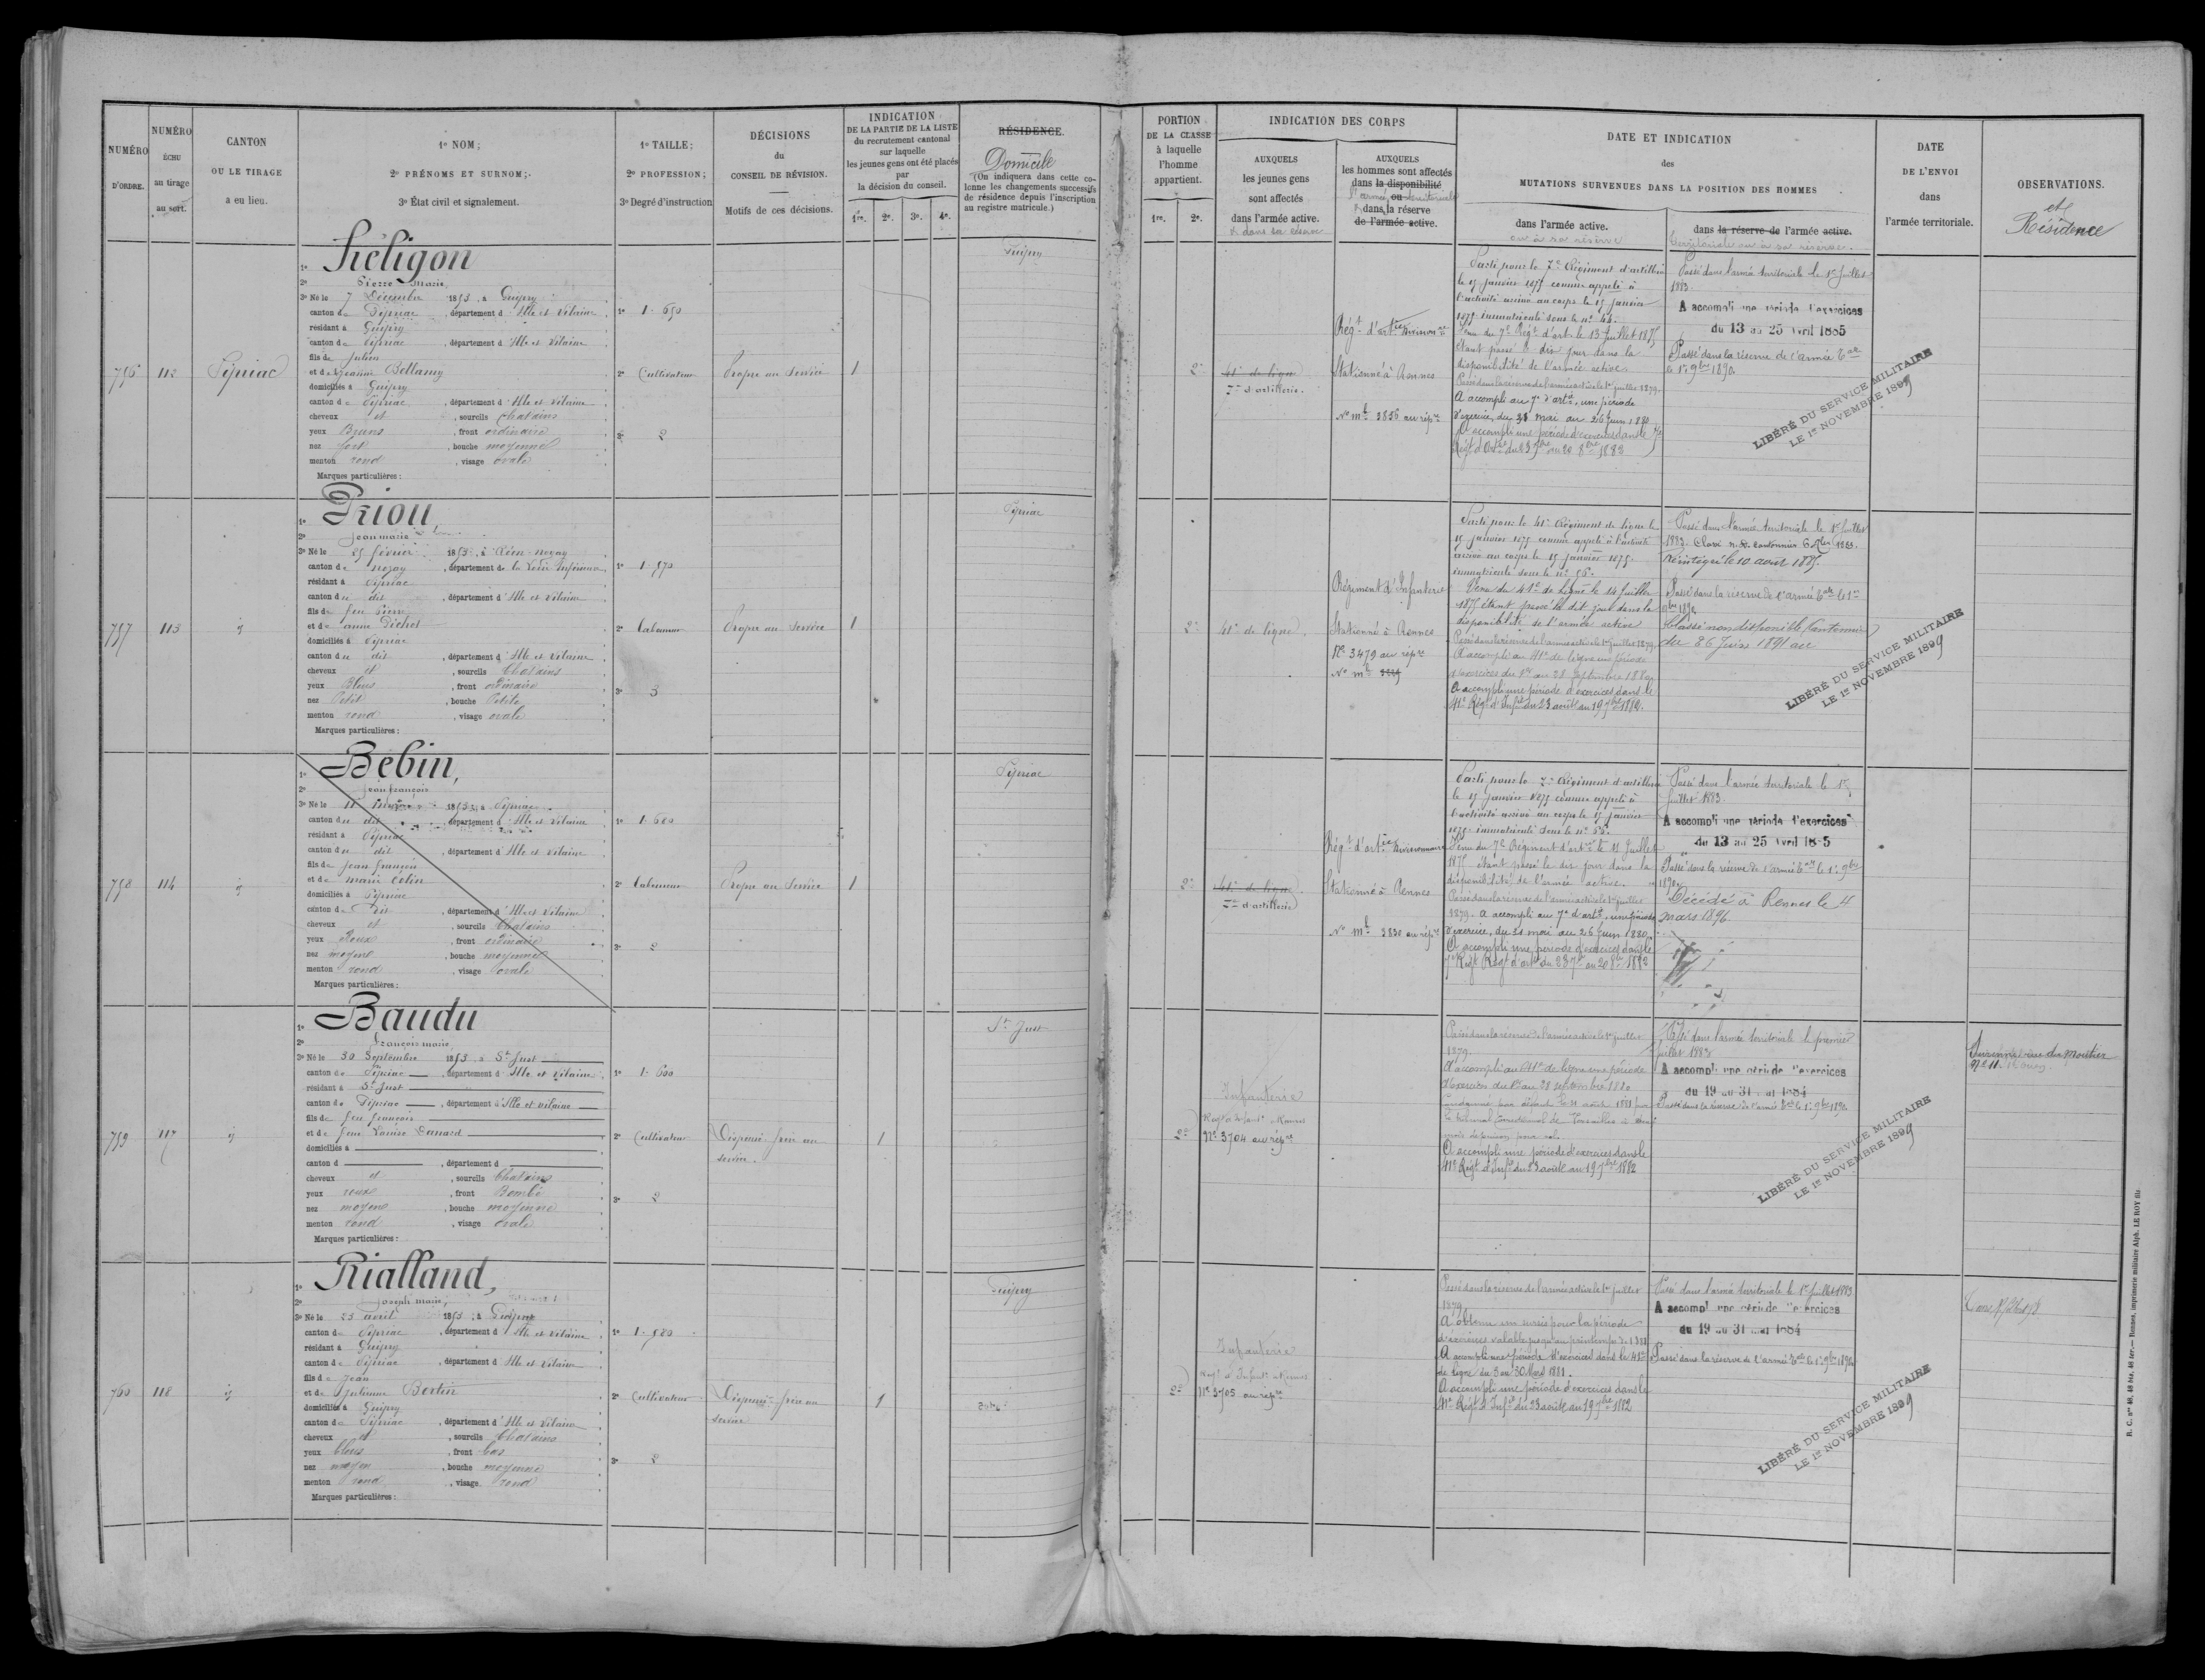 NUMÉRO D'ORDRE.
NUMÉRO ÉCHU au tirage au sort.
CANTON OU LE TIRAGE a eu lieu.
1º NOM;
2º PRÉNOMS ET SURNOM;
3º État civil et signalement.
1º TAILLE;
2º PROFESSION;
3º Degré d'instruction
DÉCISIONS
du
CONSEIL DE RÉVISION.
Motifs de ces décisions.
INDICATION
DE LA PARTIE DE LA LISTE
du recrutement cantonal
sur laquelle
les jeunes gens ont été placés
par
la décision du conseil.
1re. 2e. 3e. 4e.
RÉSIDENCE.
Domicile
(On indiquera dans cette co-
lonne les changements successifs
de résidence depuis l'inscription
au registre matricule.)
PORTION
DE LA CLASSE
à laquelle
l'homme
appartient.
1re. 2e.
INDICATION DES CORPS
AUXQUELS
les jeunes gens
sont affectés
dans l'armée active.
& dans sa réserve
AUXQUELS
les hommes sont affectés
dans la disponibilité
ou
l'armée territoriale
& dans la réserve
de l'armée active.
DATE ET INDICATION
des
MUTATIONS SURVENUES DANS LA POSITION DES HOMMES
dans l'armée active.
ou à sa réserve
dans la réserve de l'armée active.
territoriale ou à sa réserve.
DATE
DE L'ENVOI
dans
l'armée territoriale.
OBSERVATIONS.
et
Résidence
756
112
Pipriac
1º Héligon
2º Pierre Marie
3º Né le 7 Décembre 1853, à Guipry
canton de Pipriac, département d'Ille et Vilaine
résidant à Guipry
canton de Pipriac, département d'Ille et Vilaine
fils de Julien
et de Jeanne Bellamy
domiciliés à Guipry
canton de Pipriac, département d'Ille et Vilaine
cheveux et, sourcils Chatains
yeux Bruns, front ordinaire
nez fort, bouche moyenne
menton rond, visage ovale
Marques particulières :
1º 1.650
2º Cultivateur
3º 2
Propre au Service
1
Guipry
2e
41e de ligne
7e d'artillerie.
Régt d'artie Divisionre
Stationné à Rennes
No mle 3856 au répre
Parti pour le 7e Régiment d'artillerie
le 15 janvier 1875 comme appelé à
l'activité arrivé au corps le 15 janvier
1875 immatriculé sous le no 45.
Venu du 7e Régt d'art. le 13 Juillet 1875
étant passé le dit jour dans la
disponibilité de l'armée active.
Passé dans la réserve de l'armée active le 1er juillet 1879.
A accompli au 7e d'artie, une période
d'exercice, du 31 mai au 26 Juin 1880.
A accompli une période d'exercices dans le 7e
Régt d'Artie du 23 7bre au 20 8bre 1882
Passé dans l'armée territoriale le 1er Juillet
1883.
A accompli une période d'exercices
du 13 au 25 Avril 1885
Passé dans la réserve de l'armée Tale
le 1er 9bre 1890.
LIBÉRÉ DU SERVICE MILITAIRE
LE 1er NOVEMBRE 1899
757
113
id
1º Priou,
2º Jean marie
3º Né le 25 février 1853, à
canton de nozay, département de la Loire Inférieure
résidant à Pipriac
canton du dit, département d'Ille et Vilaine
fils de feu Pierre
et de anne Pichot
domiciliés à Pipriac
canton du dit, département d'Ille et Vilaine
cheveux et, sourcils Chatains
yeux Bleus, front ordinaire
nez Petit, bouche Petite
menton rond, visage ovale
Marques particulières :
1º 1.570
2º Laboureur
3º 3
Propre au Service
1
Pipriac
2e
41e de ligne.
Régiment d'Infanterie
Stationné à Rennes
No 3479 au répre
No mle
Parti pour le 41e Régiment de ligne le
15 janvier 1875 comme appelé à l'activité
arrivé au corps le 15 janvier 1875.
immatriculé sous le no 56.
Venu du 41e de ligne le 14 Juillet
1875 étant passé le dit jour dans la
disponibilité de l'armée active
Passé dans la réserve de l'armée active le 1er juillet 1879
A accompli au 41e de ligne une période
d'exercices du 1er au 28 Septembre 1880
A accompli une période d'exercices dans le
41e Régt d'Infie du 23 août au 19 7bre 1882.
Passé dans l'armée territoriale le 1er Juillet
1883. Classé n. d. cantonnier 6 1883.
Réintégré le 10 avril 1885.
Passé dans la réserve de l'armée Tale le 1er
9bre 1890
Classé non disponible (Cantonnier)
du 26 Juin 1891
LIBÉRÉ DU SERVICE MILITAIRE
LE 1er NOVEMBRE 1899
758
114
id
1º Bébin,
2º Jean françois
3º Né le 11 1853, à Pipriac
canton du dit, département d'Ille et Vilaine
résidant à Pipriac
canton du dit, département d'Ille et Vilaine
fils de Jean françois
et de marie Cotin
domiciliés à Pipriac
canton du Dit, département d'Ille et Vilaine
cheveux et, sourcils Chatains
yeux Roux, front ordinaire
nez moyen, bouche moyenne
menton rond, visage ovale
Marques particulières :
1º 1.680
2º Laboureur
3º 2
Propre au Service
1
Pipriac
2e
41e de ligne
7e d'artillerie
Régt d'artie Divisionnaire
Stationné à Rennes
No mle 3830 au répre
Parti pour le 7e Régiment d'artillerie
le 15 janvier 1875 comme appelé à
l'activité arrivé au corps le 15 janvier
1875 immatriculé sous le no 55.
Venu du 7e Régiment d'artie le 11 Juillet
1875 étant passé le dit jour dans la
disponibilité de l'armée active.
Passé dans la réserve de l'armée active le 1er juillet
1879. A accompli au 7e d'artie, une période
d'exercice, du 31 mai au 26 Juin 1880.
A accompli une période d'exercices dans le
7e Régt Régt d'artie du 23 7bre au 20 8bre 1882
Passé dans l'armée territoriale le 1er
Juillet 1883.
A accompli une période d'exercices
du 13 au 25 Avril 1885
Passé dans la réserve de l'armée Tale le 1er 9bre
1890.
Décédé à Rennes le 4
mars 1896
759
117
id
1º Baudu
2º françois marie
3º Né le 30 Septembre 1853, à St Just
canton de Pipriac, département d'Ille et Vilaine
résidant à St Just
canton de Pipriac, département d'Ille et Vilaine
fils de feu françois
et de feue Louise Danard
domiciliés à
canton d, département d
cheveux et, sourcils Chatains
yeux roux, front Bombé
nez moyen, bouche moyenne
menton rond, visage ovale
Marques particulières :
1º 1.600
2º Cultivateur
3º 2
Dispensé frère au
service.
1
St Just
2e
Infanterie
Régt d'Infant. Rennes
No 3704 au répre
Passé dans la réserve de l'armée active le 1er juillet
1879.
A accompli au 41e de ligne une période
d'exercices du 1er au 28 septembre 1880
Condamné par défaut le 21 août 1881 par
le tribunal Correctionnel de Versailles à
mois de prison pour vol.
A accompli une période d'exercices dans le
41e Régt d'Infie du 23 août au 19 7bre 1882
Passé dans l'armée territoriale le premier
juillet 1883
A accompli une période d'exercices
du 19 au 31 mai 1884
Passé dans la réserve de l'armée Tale le 1er 9bre 1890.
LIBÉRÉ DU SERVICE MILITAIRE
LE 1er NOVEMBRE 1899
rue du Moutier
No 11. St Ouen
760
118
id
1º Rialland,
2º Joseph marie,
3º Né le 23 avril 1853, à Guipry
canton de Pipriac, département d'Ille et Vilaine
résidant à Guipry
canton de Pipriac, département d'Ille et Vilaine
fils de Jean
et de Julienne Bertin
domiciliés à Guipry
canton de Pipriac, département d'Ille et Vilaine
cheveux et, sourcils Chatains
yeux bleus, front bas
nez moyen, bouche moyenne
menton rond, visage rond
Marques particulières :
1º 1.580
2º Cultivateur
3º 2
Dispensé frère au
service
1
Guipry
2e
Infanterie
Régt d'Infant. Rennes
No 3705 au répre
Passé dans la réserve de l'armée active le 1er juillet
1879.
A obtenu un sursis pour la période
d'exercices valable jusqu'au printemps de 1881
A accompli une période d'exercices dans le 41e
de ligne du 3 au 30 Mars 1881.
A accompli une période d'exercices dans le
41e Régt d'Infie du 23 août au 19 7bre 1882
Passé dans l'armée territoriale le 1er Juillet 1883.
A accompli une période d'exercices
du 19 au 31 mai 1884
Passé dans la réserve de l'armée Tale le 1er 9bre 1890.
LIBÉRÉ DU SERVICE MILITAIRE
LE 1er NOVEMBRE 1899
R. C. nos 48, 48 bis, 48 ter. — Rennes, imprimerie militaire Alph. LE ROY fils